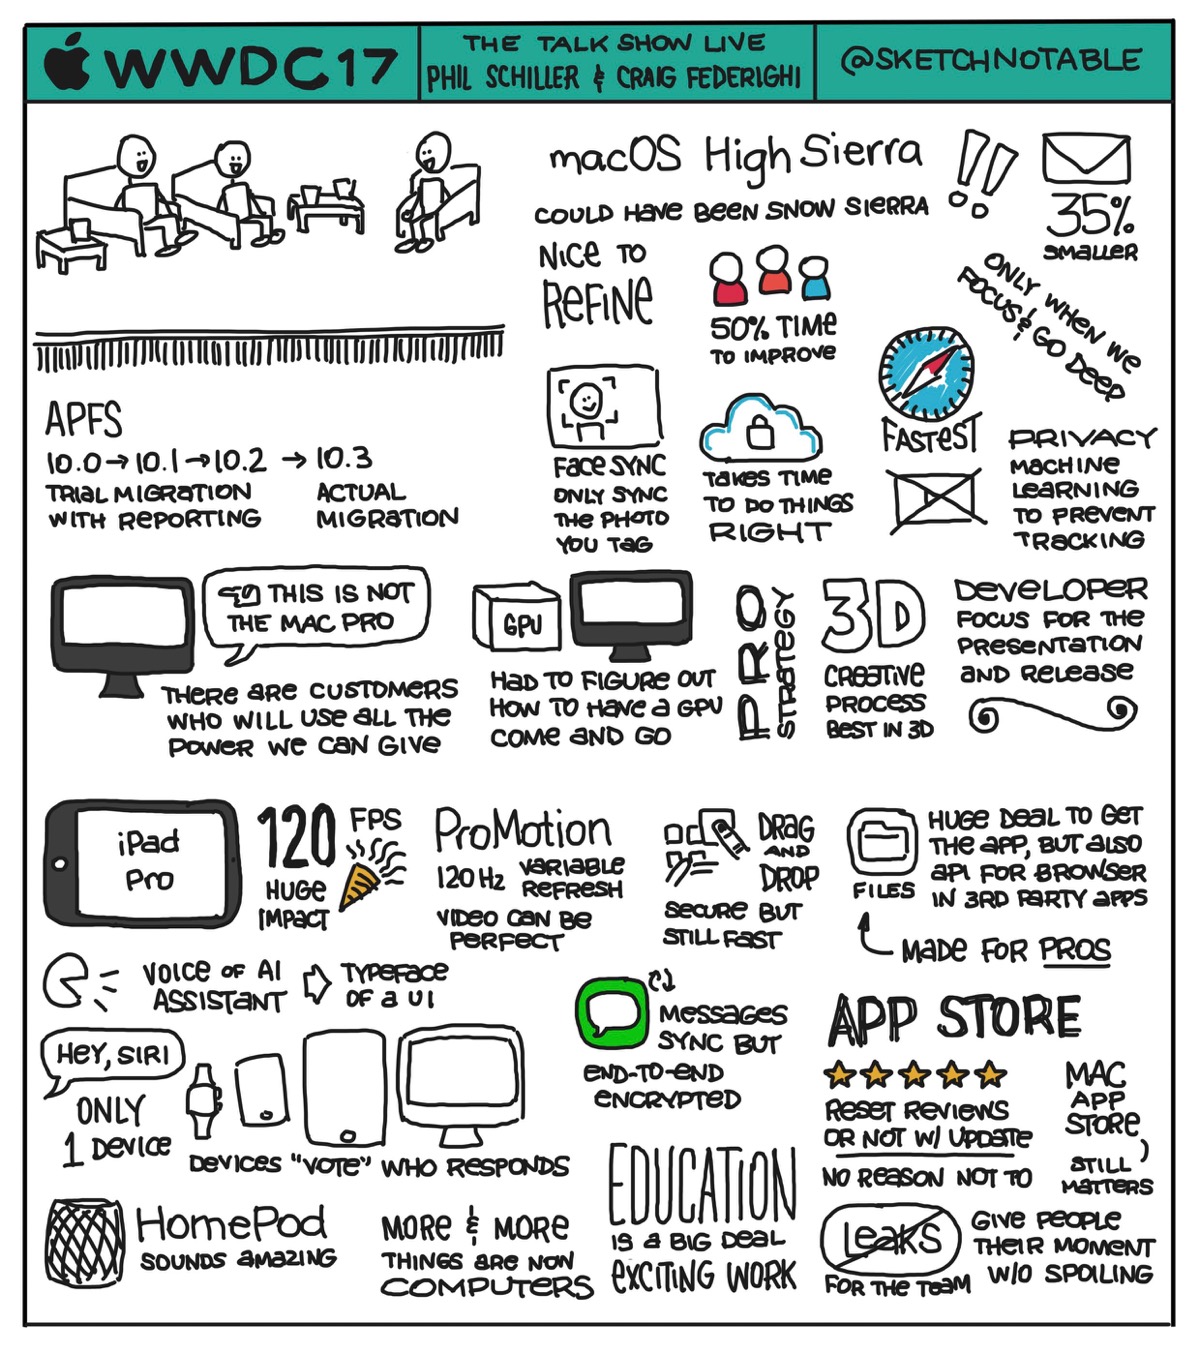 WWDC17
THE TALK SHOW LIVE
PHIL SCHILLER & CRAIG FEDERIGHI
@SKETCHNOTABLE
macOS High Sierra
COULD HAVE BEEN SNOW SIERRA
!!
35%
SMALLER
NICE TO
REFINE
50% TIME
TO IMPROVE
ONLY WHEN WE
FOCUS & GO DEEP
APFS
10.0→10.1→10.2 → 10.3
TRIAL MIGRATION
WITH REPORTING
ACTUAL
MIGRATION
FACE SYNC
ONLY SYNC
THE PHOTO
YOU TAG
TAKES TIME
TO DO THINGS
RIGHT
FASTEST
PRIVACY
MACHINE
LEARNING
TO PREVENT
TRACKING
THIS IS NOT
THE MAC PRO
THERE ARE CUSTOMERS
WHO WILL USE ALL THE
POWER WE CAN GIVE
GPU
HAD TO FIGURE OUT
HOW TO HAVE A GPU
COME AND GO
PRO
STRATEGY
3D
CREATIVE
PROCESS
BEST IN 3D
DEVELOPER
FOCUS FOR THE
PRESENTATION
AND RELEASE
iPad
Pro
120 FPS
HUGE
IMPACT
ProMotion
120Hz VARIABLE
REFRESH
VIDEO CAN BE
PERFECT
DRAG
AND
DROP
SECURE BUT
STILL FAST
FILES
HUGE DEAL TO GET
THE APP, BUT ALSO
API FOR BROWSER
IN 3RD PARTY APPS
MADE FOR PROS
VOICE OF AI
ASSISTANT
TYPEFACE
OF A UI
HEY, SIRI
ONLY
1 DEVICE
DEVICES "VOTE" WHO RESPONDS
MESSAGES
SYNC BUT
END-TO-END
ENCRYPTED
APP STORE
RESET REVIEWS
OR NOT W/ UPDATE
NO REASON NOT TO
MAC
APP
STORE,
STILL
MATTERS
HomePod
SOUNDS AMAZING
MORE & MORE
THINGS ARE NOW
COMPUTERS
EDUCATION
IS A BIG DEAL
EXCITING WORK
LEAKS
FOR THE TEAM
GIVE PEOPLE
THEIR MOMENT
W/O SPOILING